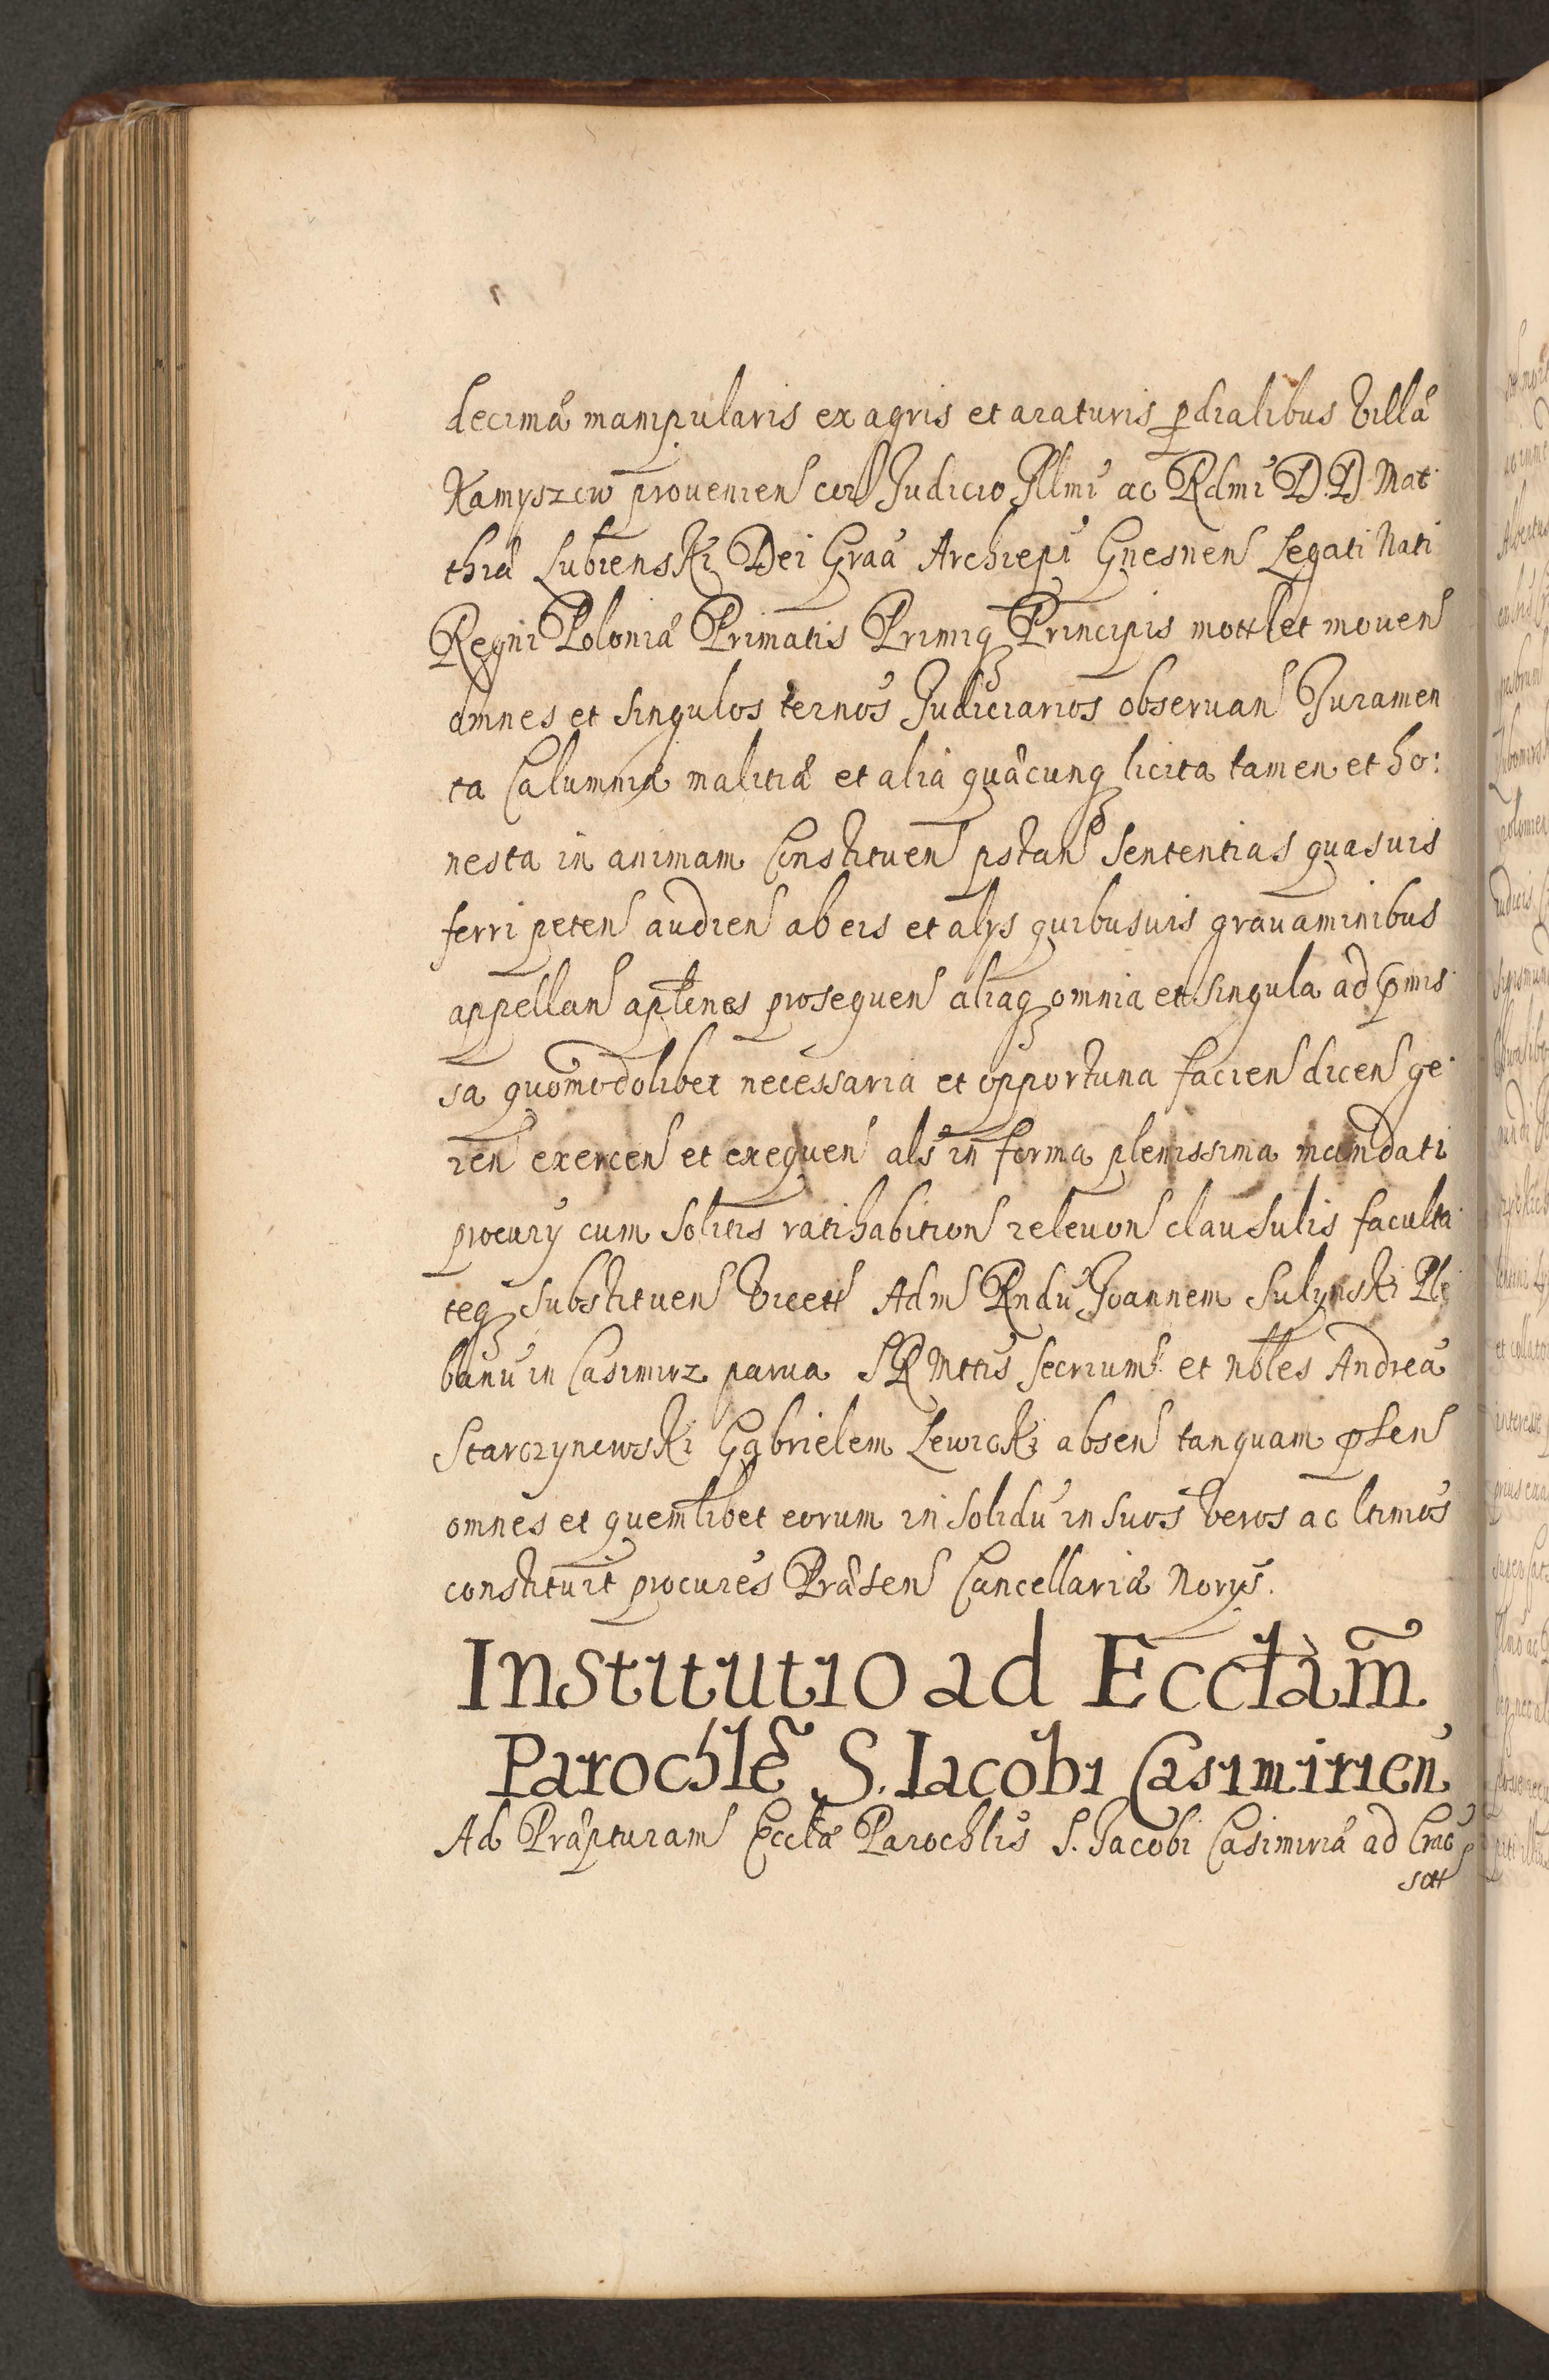 decimæ manipularis ex agris et araturis prdialibus Villæ
Kamyszew provenien cor Judicio Illmi ac Rdmi D. D. Mat
thiæ Lubienski Dei Graa Archiepi Gnesnen Legati Nati
Regni Poloniæ Primatis Primiq Principis mott et mouen
omnes et singulos ternos Judiciarios observan Juramen
ta Calumniæ malitiæ et alia quæcunq licita tamen et ho:
nesta in animam Constituen pstan Sententias quasuis
ferri peten audien ab eis et alys quibusuis gravaminibus
appellan aplenes prosequen aliaq omnia et singula ad pmis
sa quomodolibet necessaria et opportuna facien dicen ge
ren exercen et exequen als in forma plenissima mandati
procury cum solitis ratihabition relevon clausulis faculta
teq substituen Vicett Adm Rndu Joannem Sulynski Ple
banu in Casimirz parua S R Mttis Secrium et nobles Andreæ
Starczynewski Gabrielem Lewicki absen tanquam psen
omnes et quemlibet eorum in solidu in suos veros ac ltimos
constituit procures Præsen Cancellariæ Norys.
Institutio ad Ecclam
Parochlẽ S. Iacobi Casimirien
Ad Præpturam Ecclæ Parochlis S. Jacobi Casimiriæ ad Crac